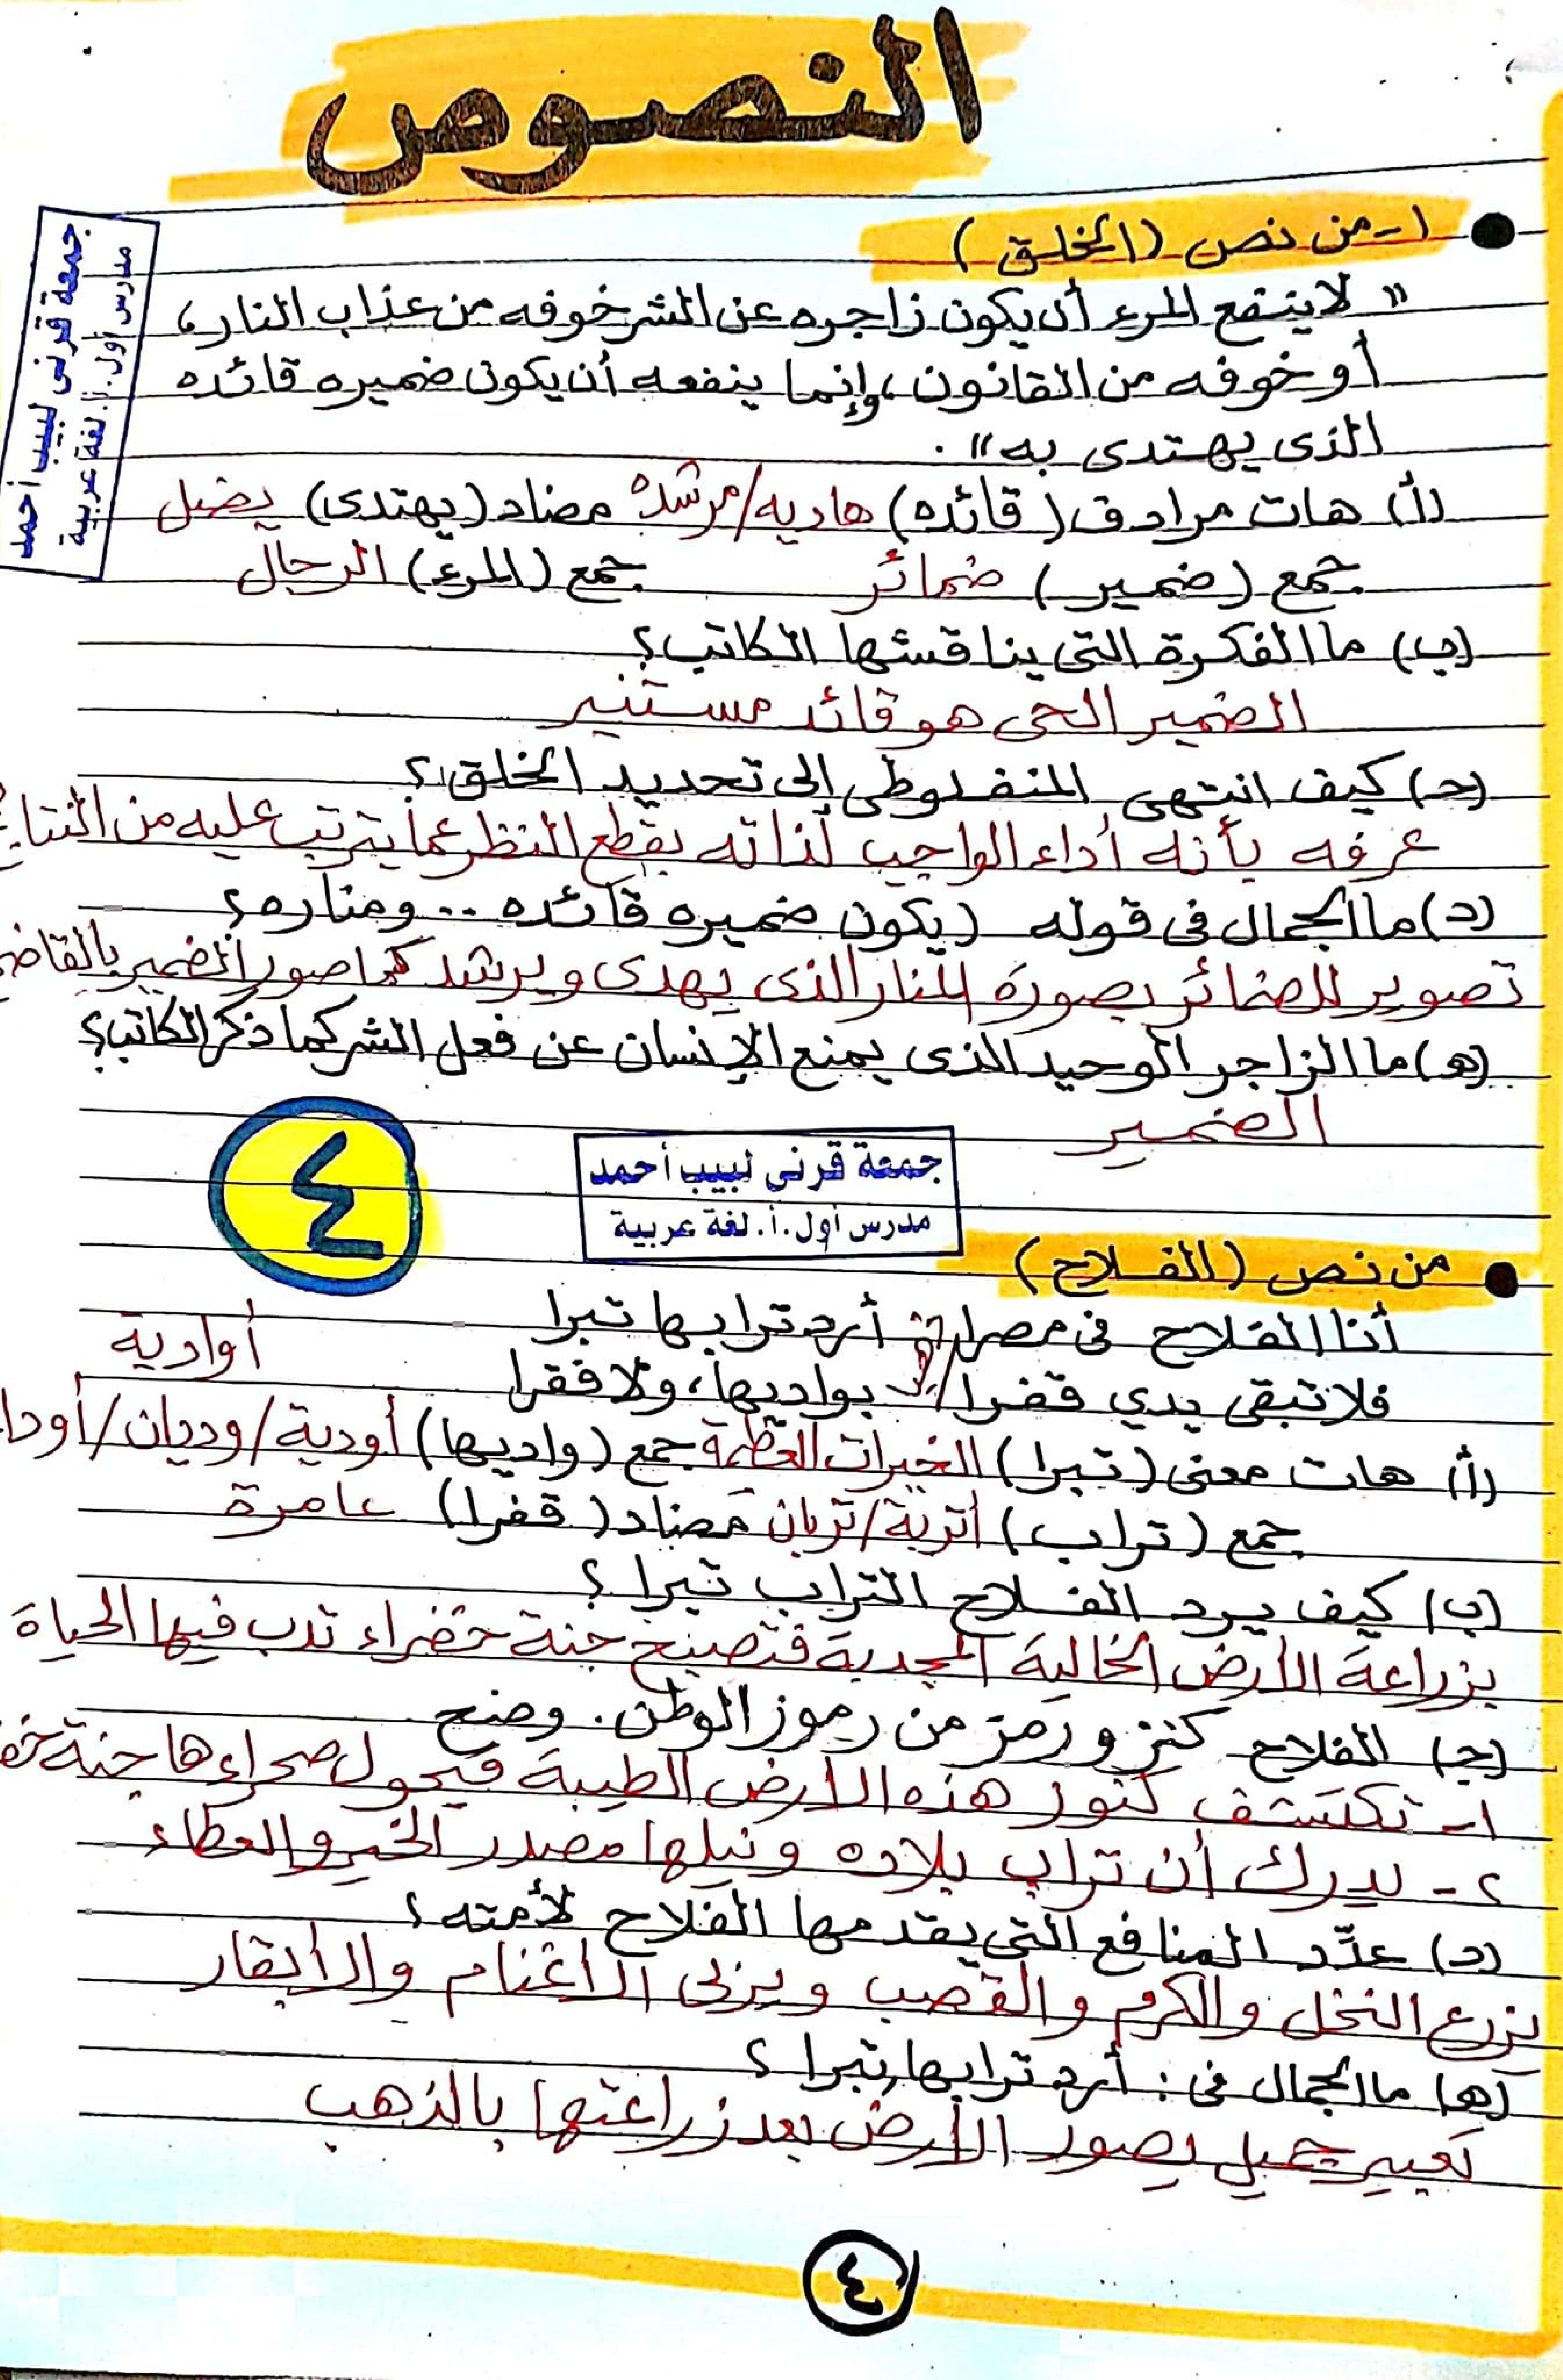 النصوص
١- من نص (الخلق)
" لا ينفع المرء أن يكون زاجره عن الشر خوفه من عذاب النار،
أو خوفه من القانون، وإنما ينفعه أن يكون ضميره قائده
الذى يهتدى به".
(أ) هات مرادف (قائده) هاديه/مرشده مضاد (يهتدى) يضل
جمع (ضمير) ضمائر جمع (المرء) الرجال
(ب) ما الفكرة التى يناقشها الكاتب؟
الضمير الحى هو قائد مستنير
(حـ) كيف انتهى المنفلوطى إلى تحديد الخلق؟
عرفه بأنه أداء الواجب لذاته بقطع النظر عما يترتب عليه من
(د) ما الجمال فى قوله (يكون ضميره قائده .. ومناره؟
تصوير للضمائر بصورة المنار الذى يهدى ويرشد كما صور الضمير
(هـ) ما الزاجر الوحيد الذى يمنع الإنسان عن فعل الشر كما ذكر الكاتب؟
الضمير
جمعة قرنى لبيب أحمد
مدرس أول.أ. لغة عربية
جمعة قرنى لبيب أحمد
مدرس أول.أ. لغة عربية
٤
من نص (الفلاح)
أنا الفلاح فى مصرا أرد ترابها تبرا
فلا تبقى يدي قفرا بواديها، ولا فقرا
أوادية
(أ) هات معنى (تبرا) الخيرات العظيمة جمع (واديها) أودية/وديان/
جمع (تراب) أتربة/تربان مضاد (قفرا) عامرة
(ب) كيف يرد الفلاح التراب تبرا؟
بزراعة الأرض الخالية المجدبة فتصبح جنة خضراء تدب فيها الحياة
(جـ) الفلاح كنز ورمز من رموز الوطن. وضح
١- تكتشف كنوز هذه الأرض الطيبة فيحول صحراءها جنة
٢- يدرك أن تراب بلاده ونيلها مصدر الخير والعطاء
(د) عدّد المنافع التى يقدمها الفلاح لأمته؟
يزرع النخل والكرم والقصب ويربى الأغنام والأبقار
(هـ) ما الجمال فى: أرد ترابها تبرا؟
تعبير جميل يصور الأرض بعد زراعتها بالذهب
٤